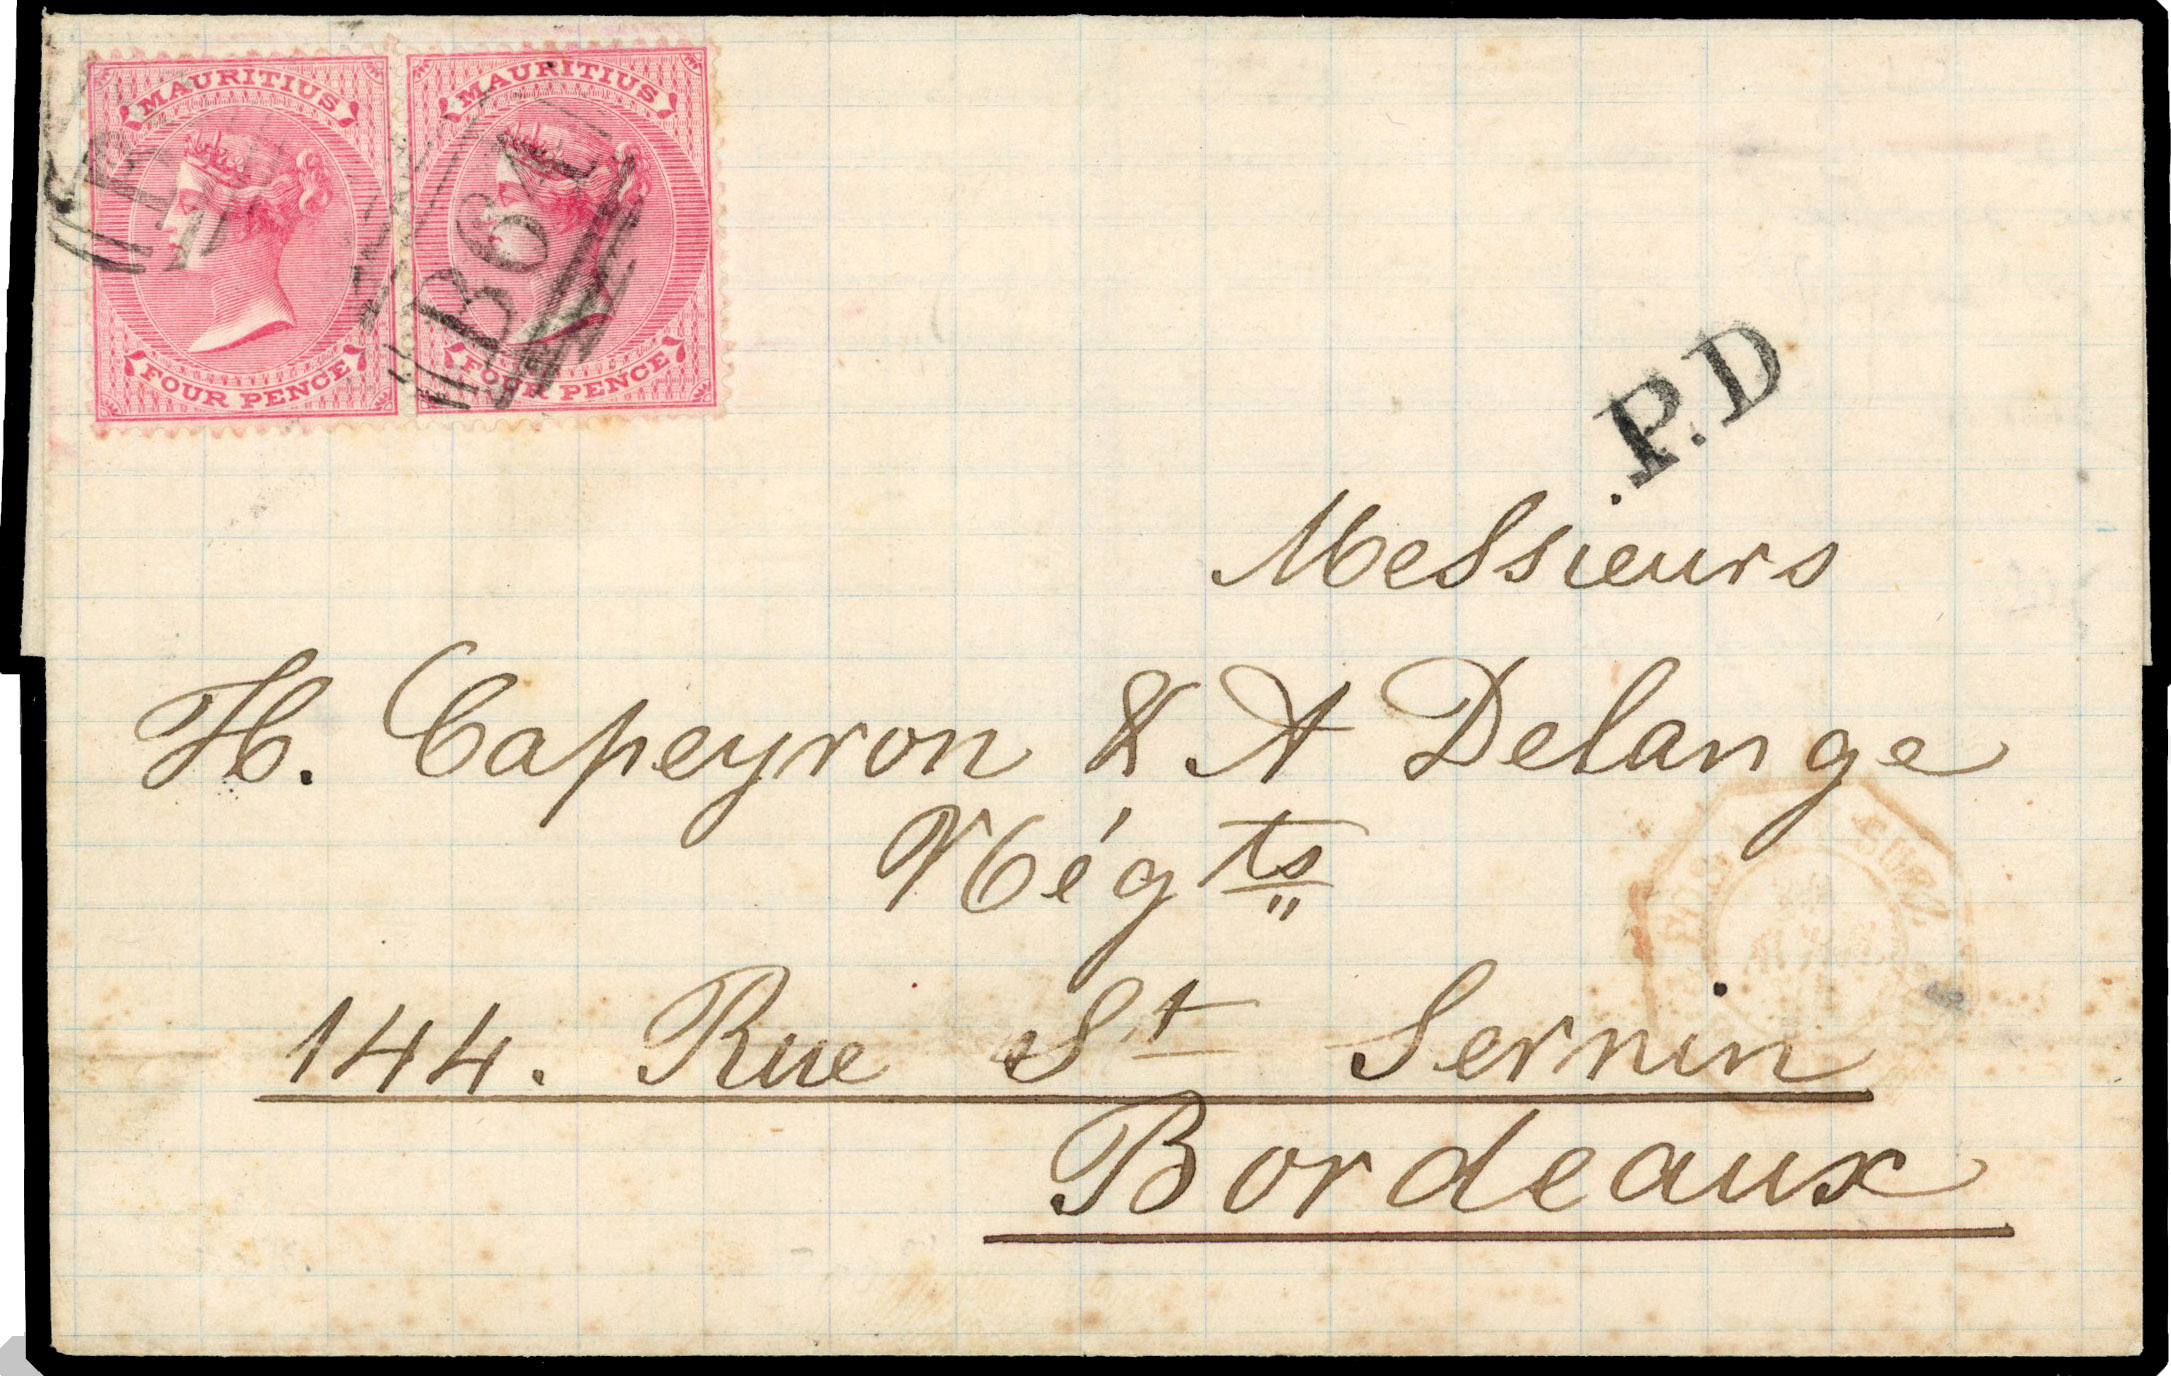 MAURITIUS
FOUR PENCE
MAURITIUS
FOUR PENCE
B64
P.D
Messieurs
H. Capeyron & A Delange
Négts
144. Rue St Sernin
Bordeaux